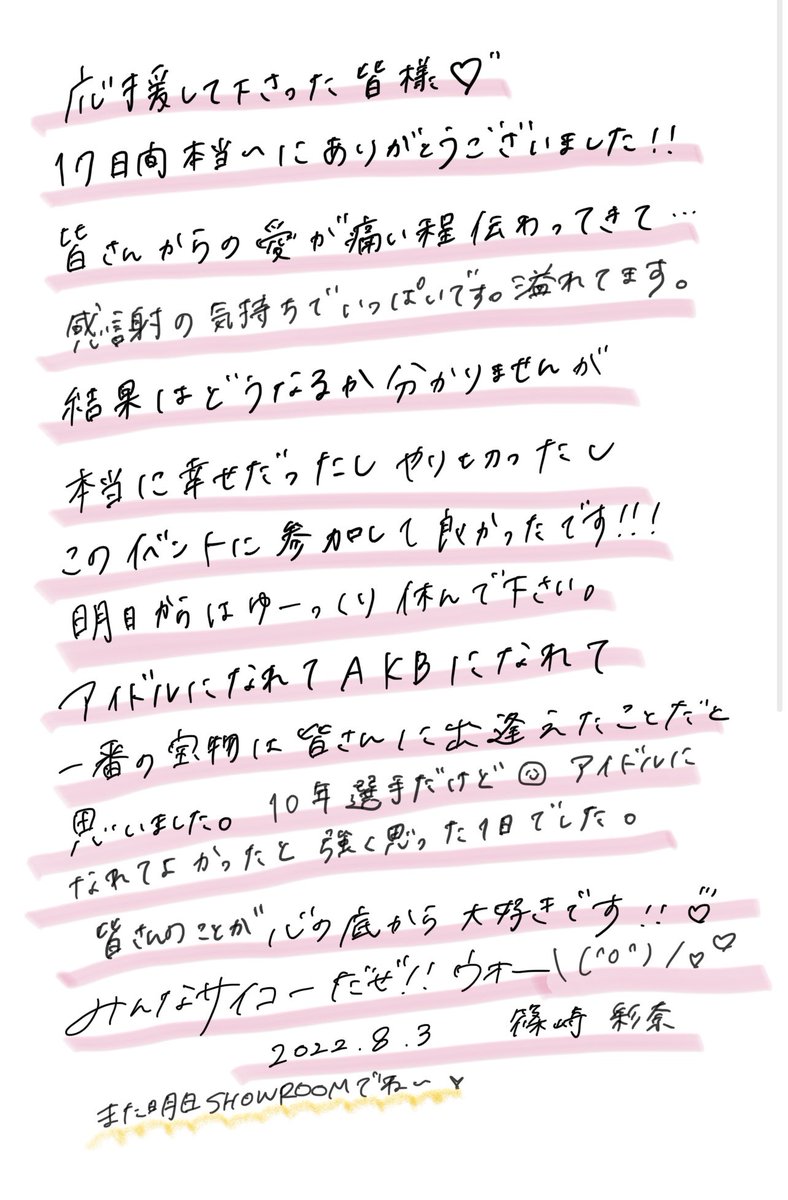 応援して下さった皆様♡
17日間本当〜にありがとうございました!!
皆さんからの愛が痛い程伝わってきて…
感謝の気持ちでいっぱいです。溢れてます。
結果はどうなるか分かりませんが
本当に幸せだったしやりもかったし
このイベントに参加して良かったです!!!
明日からはゆーっくり休んで下さい。
アイドルになれてAKBになれて
一番の宝物は皆さんに出逢えたことだと
思いました。10年選手だけど☺アイドルに
なれてよかったと強く思った1日でした。
皆さんのことが心の底から大好きです!!♡
みんなサイコーだぜ!!ウオー\(^o^)/♡♡
2022.8.3 篠崎 彩奈
また明日SHOWROOMでね〜♥